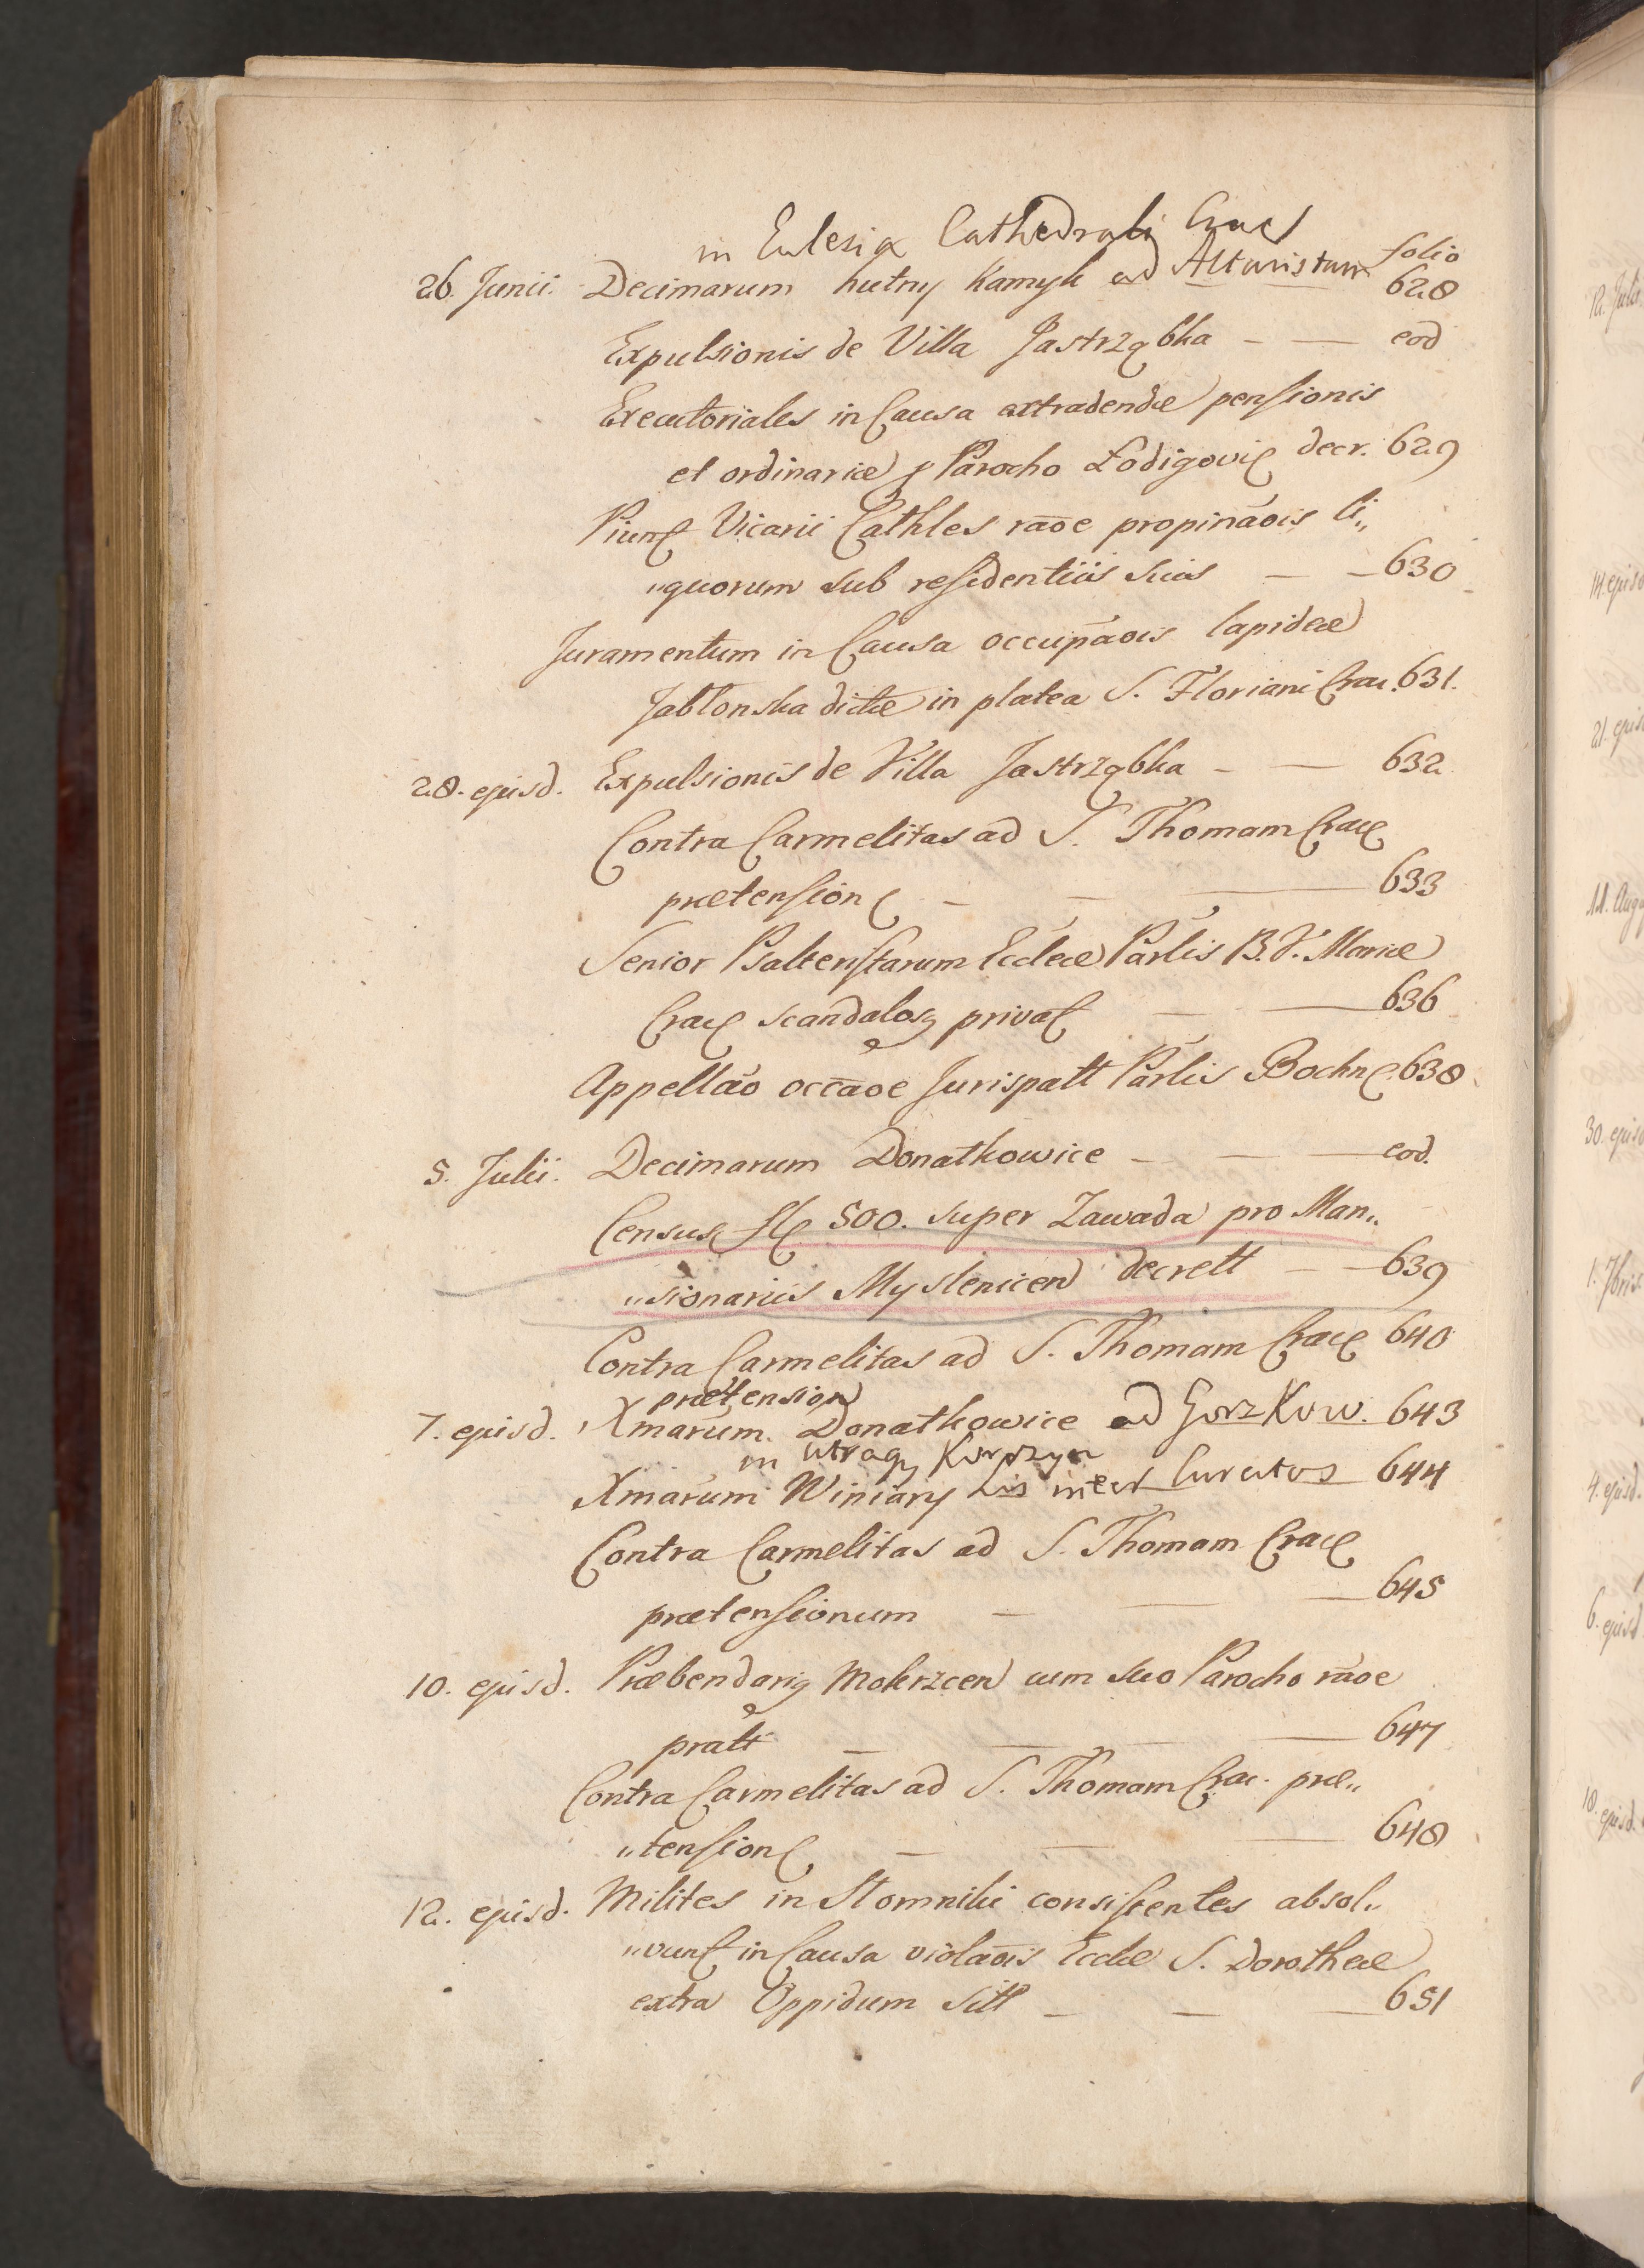 in Eclesia Cathedrali Crac
folio
26. Junii. Decimarum hutny Kamyk ad Altaristam 628
Expulsionis de Villa Jastrząbka — — eod
Executoriales in Causa extradendæ pensionis
et ordinariæ p Parocho Łodigovię decr. 629
Vicarii Cathles raõe propinaõis li„
„quorum sub residentiis suis — — 630
Juramentum in Causa occupaõis lapideæ
Jabłonska dictæ in platea S. Floriani Crac. 631.
28. ejusd. Expulsionis de Villa Jastrząbka — — 632
Contra Carmelitas ad S. Thomam Crac
prætension — — — 633
Senior Psalteristarum Eccleæ Parlis B. V. Mariæ
Crac scandalosq privat — — 636
Appellaõ occãoe Jurispatt Parlis Bochn. 638
5. Julii. Decimarum Donatkowice — — eod.
Census fl 500. super Zawada pro Man„
„sionariis Myslenicen decrett — — 639
Contra Carmelitas ad S. Thomam Crac 640
prætension
7. ejusd. Xmarum. Donatkowice ad Gorzkow. 643
in utraq Korczyn
Xmarum Winiary Lis inter Curatos 644
Contra Carmelitas ad S. Thomam Crac
prætensionum — — — 645
10. ejusd. Præbendariq Mokrzcen cum suo Parocho raõe
prati — — — 647
Contra Carmelitas ad S. Thomam Crac. præ„
„tension — — — 648
12. ejusd. Milites in Słomniki consistentes absol„
„vunt in Causa violaõis Eccleæ S. Dorotheæ
extra Oppidum sitt — — — 651